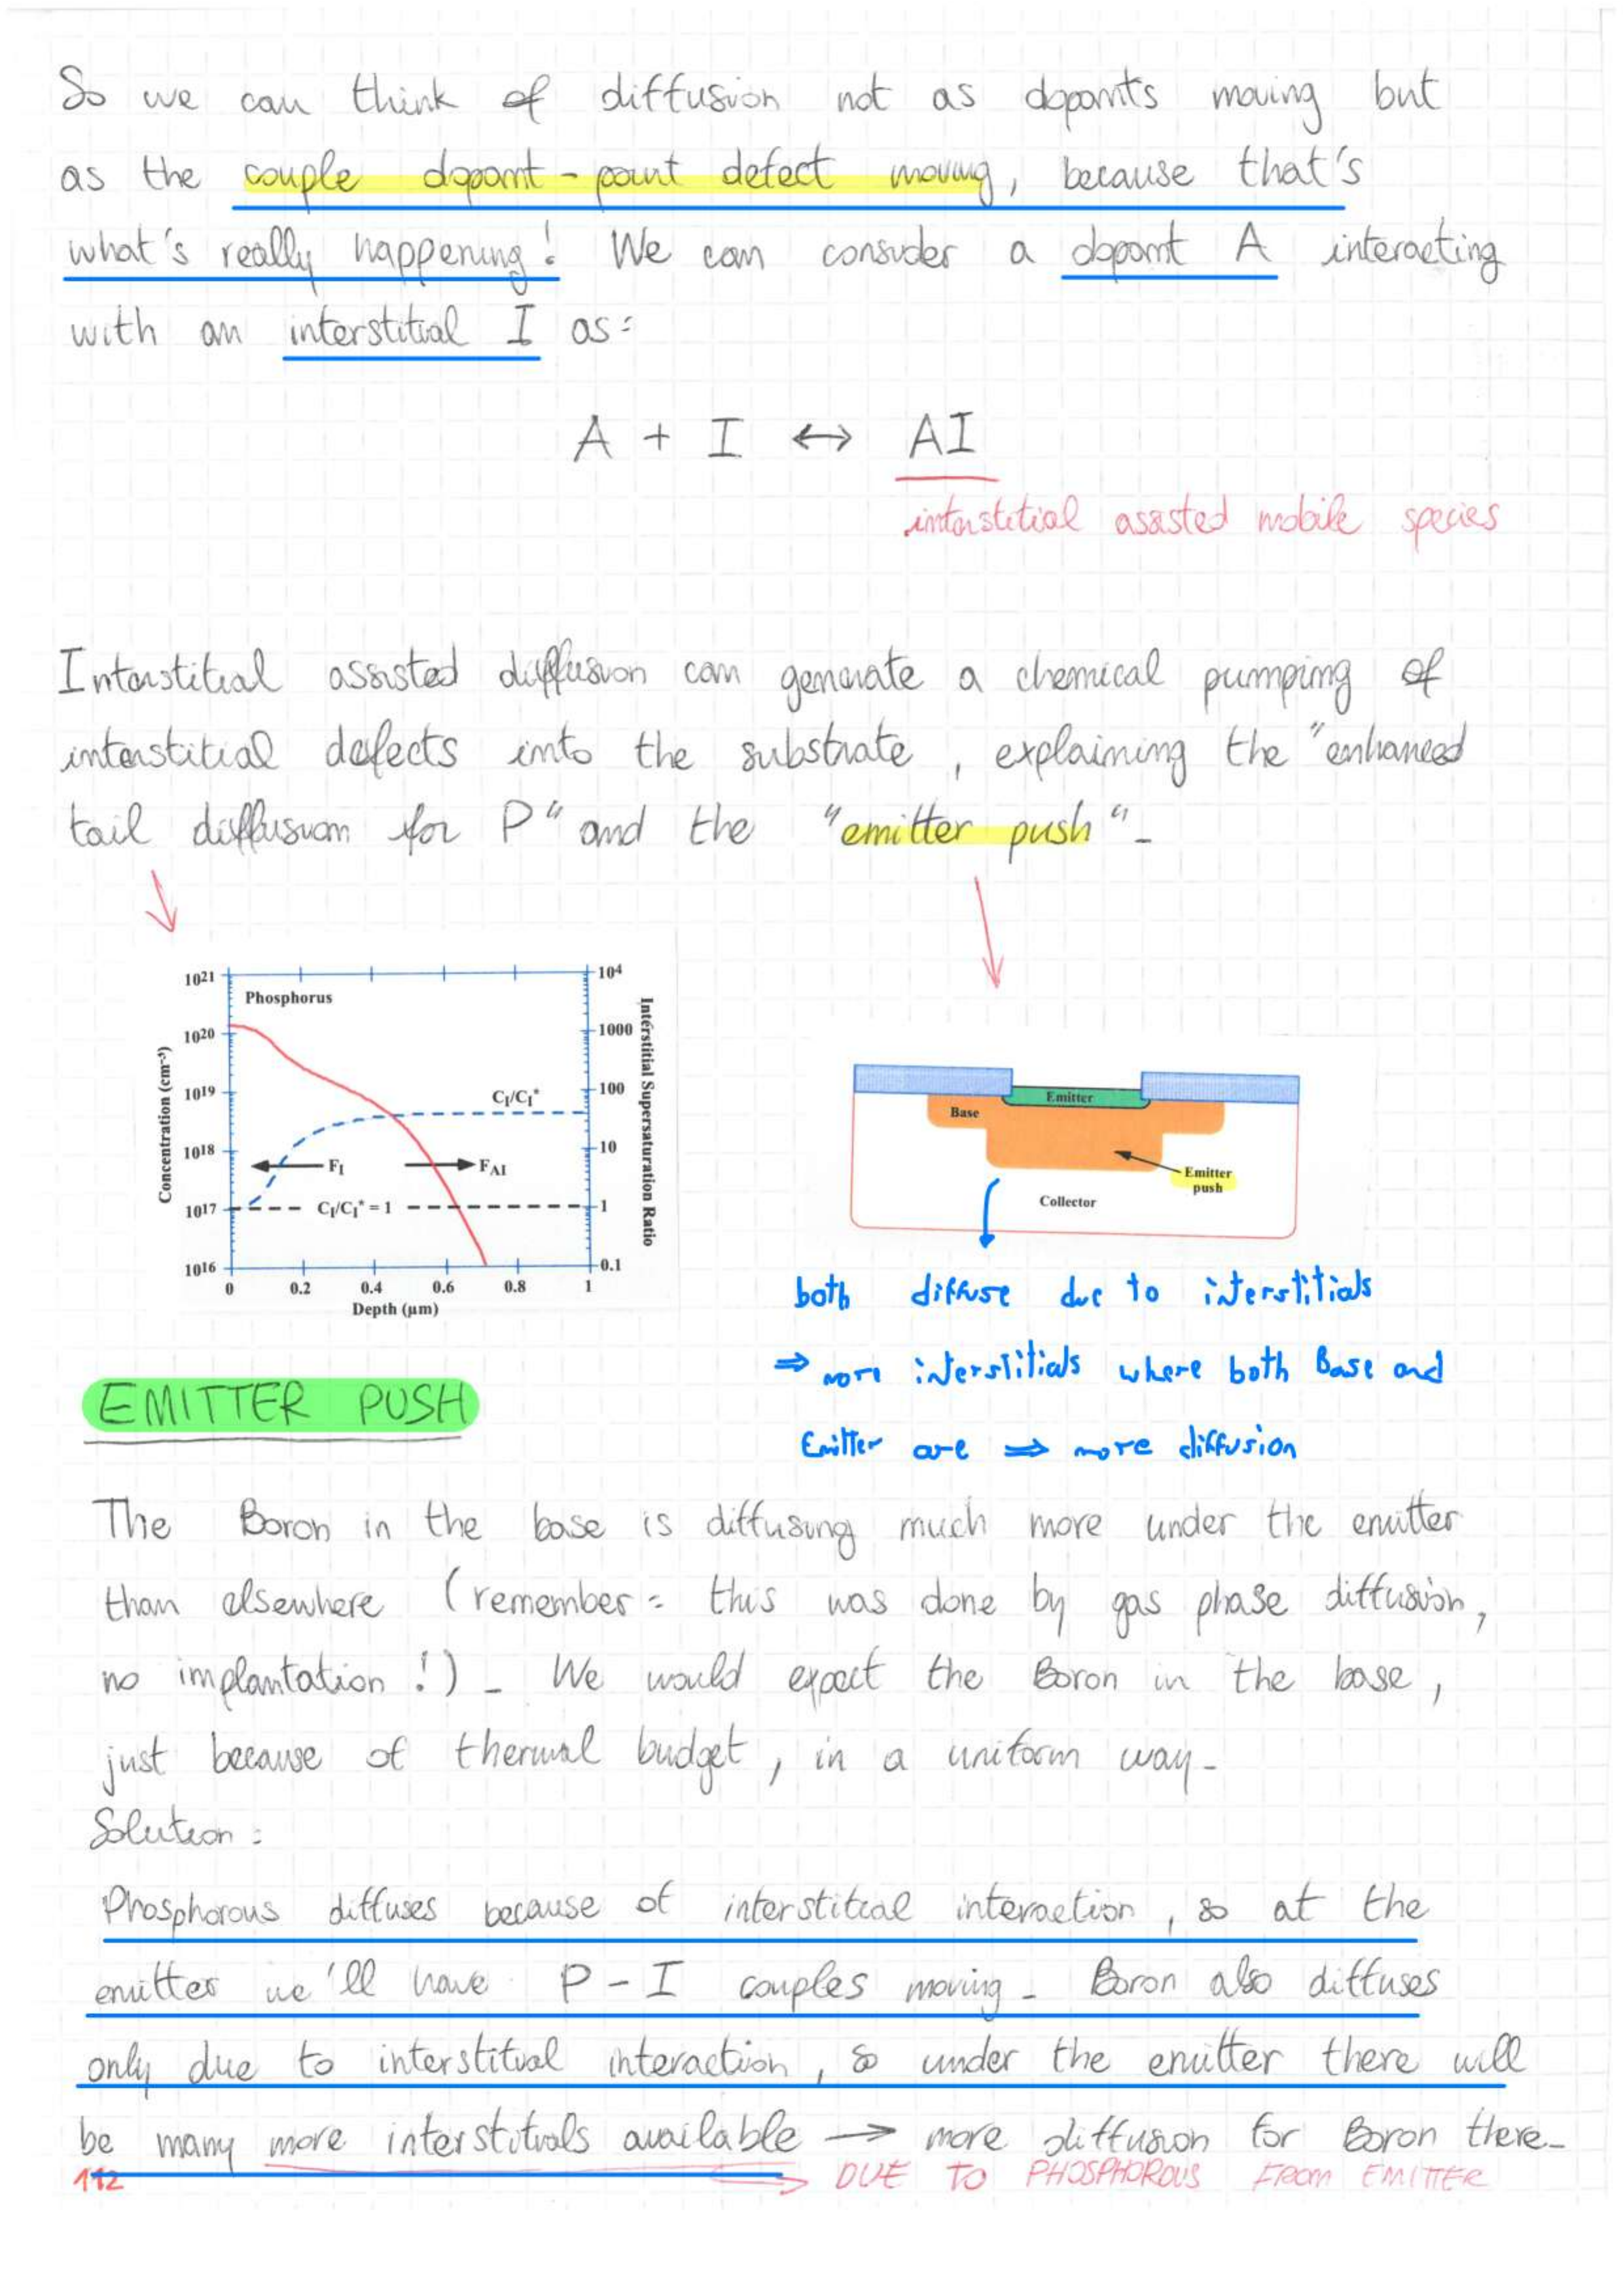 So we can think of diffusion not as dopants moving but
as the couple dopant - point defect moving, because that's
what's really happening! We can consider a dopant A interacting
with an interstitial I as:
A + I ↔ AI
interstitial assisted mobile species
Interstitial assisted diffusion can generate a chemical pumping of
interstitial defects into the substrate, explaining the "enhanced
tail diffusion for P" and the "emitter push".
10²¹
10²⁰
10¹⁹
10¹⁸
10¹⁷
10¹⁶
Concentration (cm⁻³)
Phosphorus
C_I/C_I*
F_I
F_AI
C_I/C_I* = 1
10⁴
1000
100
10
1
0.1
Interstitial Supersaturation Ratio
0 0.2 0.4 0.6 0.8 1
Depth (µm)
Emitter
Base
Emitter
push
Collector
both diffuse due to interstitials
⇒ more interstitials where both Base and
Emitter are ⇒ more diffusion
EMITTER PUSH
The Boron in the base is diffusing much more under the emitter
than elsewhere (remember: this was done by gas phase diffusion,
no implantation!). We would expect the Boron in the base,
just because of thermal budget, in a uniform way.
Solution:
Phosphorous diffuses because of interstitial interaction, so at the
emitter we'll have P-I couples moving. Boron also diffuses
only due to interstitial interaction, so under the emitter there will
be many more interstitials available → more diffusion for Boron there.
112
⇒ DUE TO PHOSPHOROUS FROM EMITTER